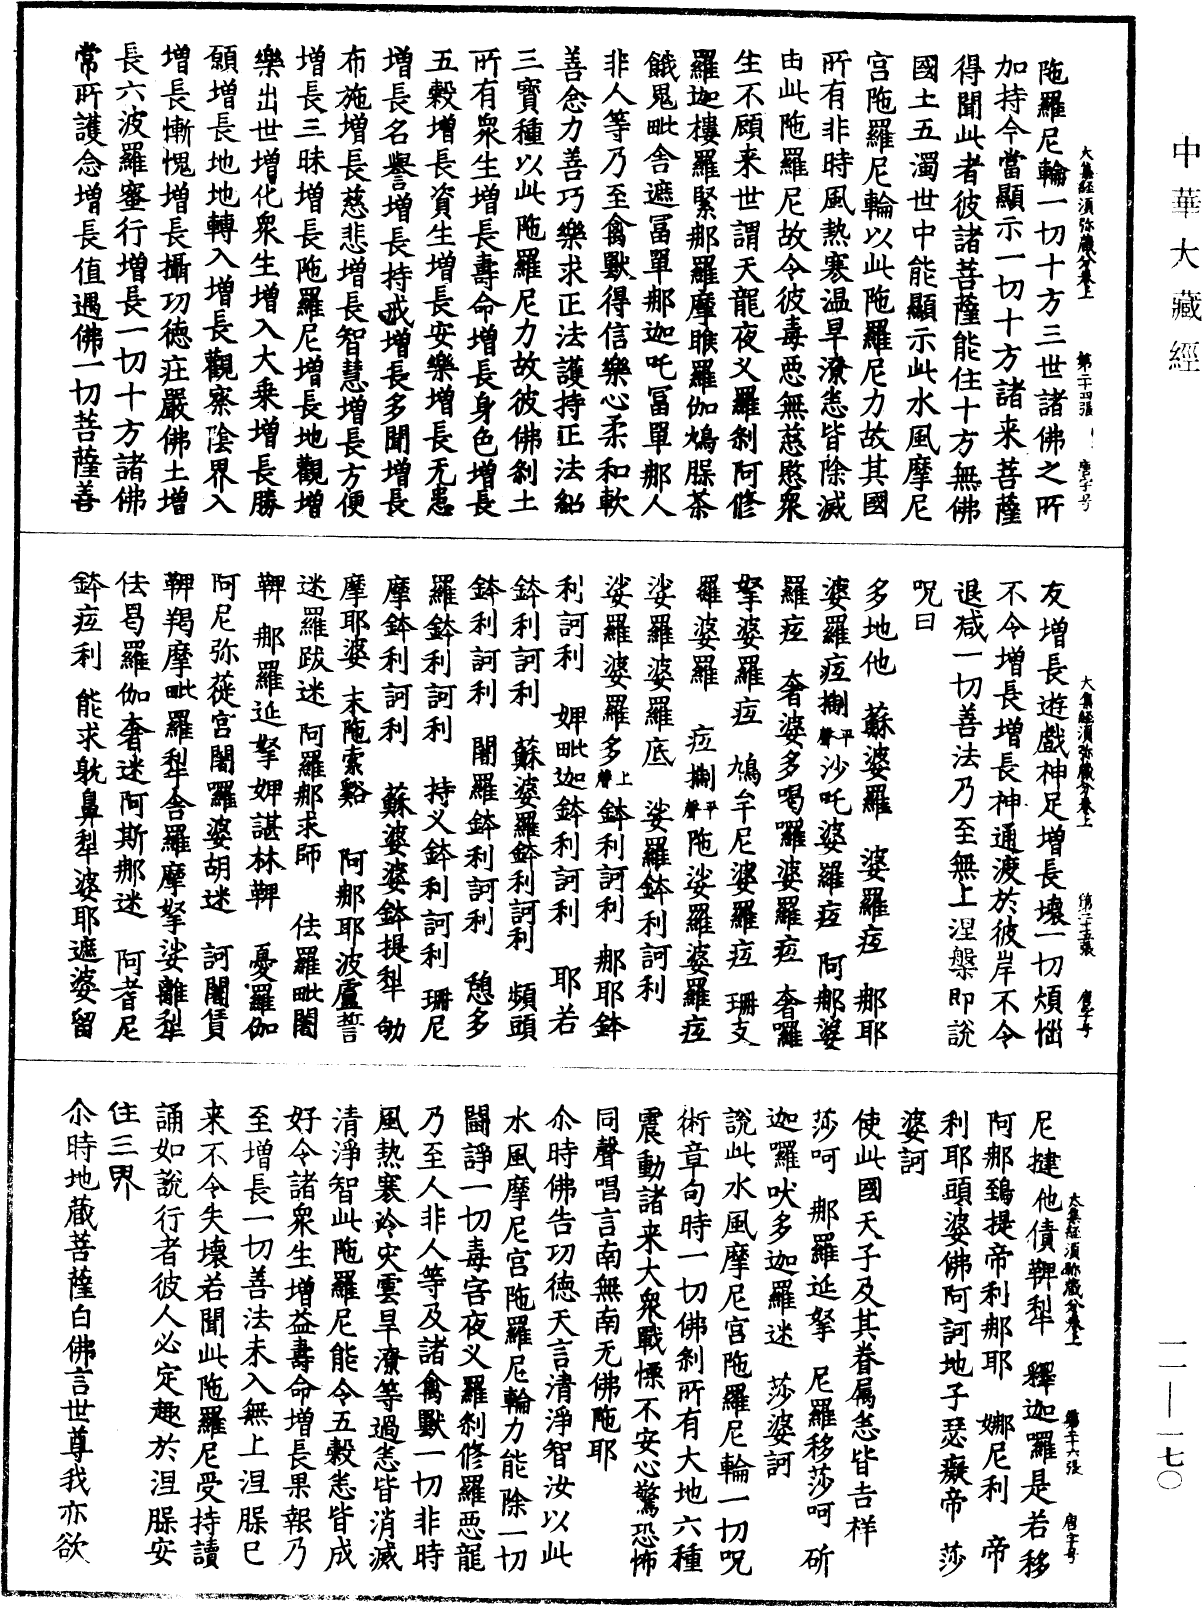 中華大藏經
一一—一七〇
大集經須弥藏分卷上 第二十四張 唐字号
陁羅尼輪一切十方三世諸佛之所
加持令當顯示一切十方諸来菩薩
得聞此者彼諸菩薩能住十方無佛
國土五濁世中能顯示此水風摩尼
宫陁羅尼輪以此陁羅尼力故其國
所有非時風熱寒温旱潦悉皆除滅
由此陁羅尼故令彼毒惡無慈愍衆
生不顧来世謂天龍夜义羅刹阿修
羅迦樓羅緊那羅摩睺羅伽鳩脲茶
餓鬼毗舍遮冨單那迦吒冨單那人
非人等乃至禽獸得信樂心柔和軟
善念力善巧樂求正法護持正法紹
三寶種以此陁羅尼力故彼佛刹土
所有衆生增長壽命增長身色增長
五穀增長資生增長安樂增長无患
增長名譽增長持戒增長多聞增長
布施增長慈悲增長智慧增長方便
增長三昧增長陁羅尼增長地觀增
樂出世增化衆生增入大乘增長勝
願增長地地轉入增長觀察陰界入
增長慚愧增長攝功德莊嚴佛土增
長六波羅蜜行增長一切十方諸佛
常所護念增長值遇佛一切菩薩善
大集經須弥藏分卷上 第二十五張 唐字号
友增長遊戲神足增長壞一切煩惱
不令增長增長神通渡於彼岸不令
退減一切善法乃至無上涅槃即說
呪曰
多地他 蘇婆羅 婆羅㾁 那耶
婆羅㾁㨷平聲沙吒婆羅㾁 阿那婆
羅㾁 奢婆多喝囉婆羅㾁 奢囉
拏婆羅㾁 鳩牟尼婆羅㾁 珊支
羅婆羅 㾁㨷平聲陁娑羅婆羅㾁
娑羅婆羅底 娑羅鉢利訶利
娑羅婆羅多上聲鉢利訶利 那耶鉢
利訶利 婢毗迦鉢利訶利 耶若
鉢利訶利 蘇婆羅鉢利訶利 頻頭
鉢利訶利 闍羅鉢利訶利 憩多
羅鉢利訶利 持义鉢利訶利 珊尼
摩鉢利訶利 蘇婆婆鉢提犁 劬
摩耶婆 末陁索谿 阿那耶波盧誓
迷羅跋迷 阿羅那求師 佉羅毗闍
鞞 那羅延拏婢諶林鞞 憂羅伽
阿尼弥蓰宫闍囉婆胡迷 訶闍賃
鞞羯摩毗羅犁舍羅摩拏娑離犁
佉曷羅伽奢迷阿斯那迷 阿耆尼
鉢㾁利 能求躭鼻犁婆耶遮婆留
太集經須弥藏分卷上 第二十六張 唐字号
尼揵他債鞞犁 釋迦囉是若移
阿那鵄提帝利那耶 娜尼利 帝
利耶頭婆佛阿訶地子瑟癡帝 莎
婆訶
使此國天子及其眷属悉皆吉祥
莎呵 那羅延拏 尼羅移莎呵 斫
迦囉吠多迦羅迷 莎婆訶
說此水風摩尼宫陁羅尼輪一切呪
術章句時一切佛刹所有大地六種
震動諸来大衆戰慄不安心驚恐怖
同聲唱言南無南无佛陁耶
尒時佛告功德天言清淨智汝以此
水風摩尼宫陁羅尼輪力能除一切
鬪諍一切毒害夜义羅刹修羅惡龍
乃至人非人等及諸禽獸一切非時
風熱寒泠灾雲旱潦等過悉皆消滅
清淨智此陁羅尼能令五穀悉皆成
好令諸衆生增益壽命增長果報乃
至增長一切善法未入無上涅脲已
来不令失壞若聞此陁羅尼受持讀
誦如說行者彼人必定趣於涅脲安
住三界
尒時地藏菩薩白佛言世尊我亦欲